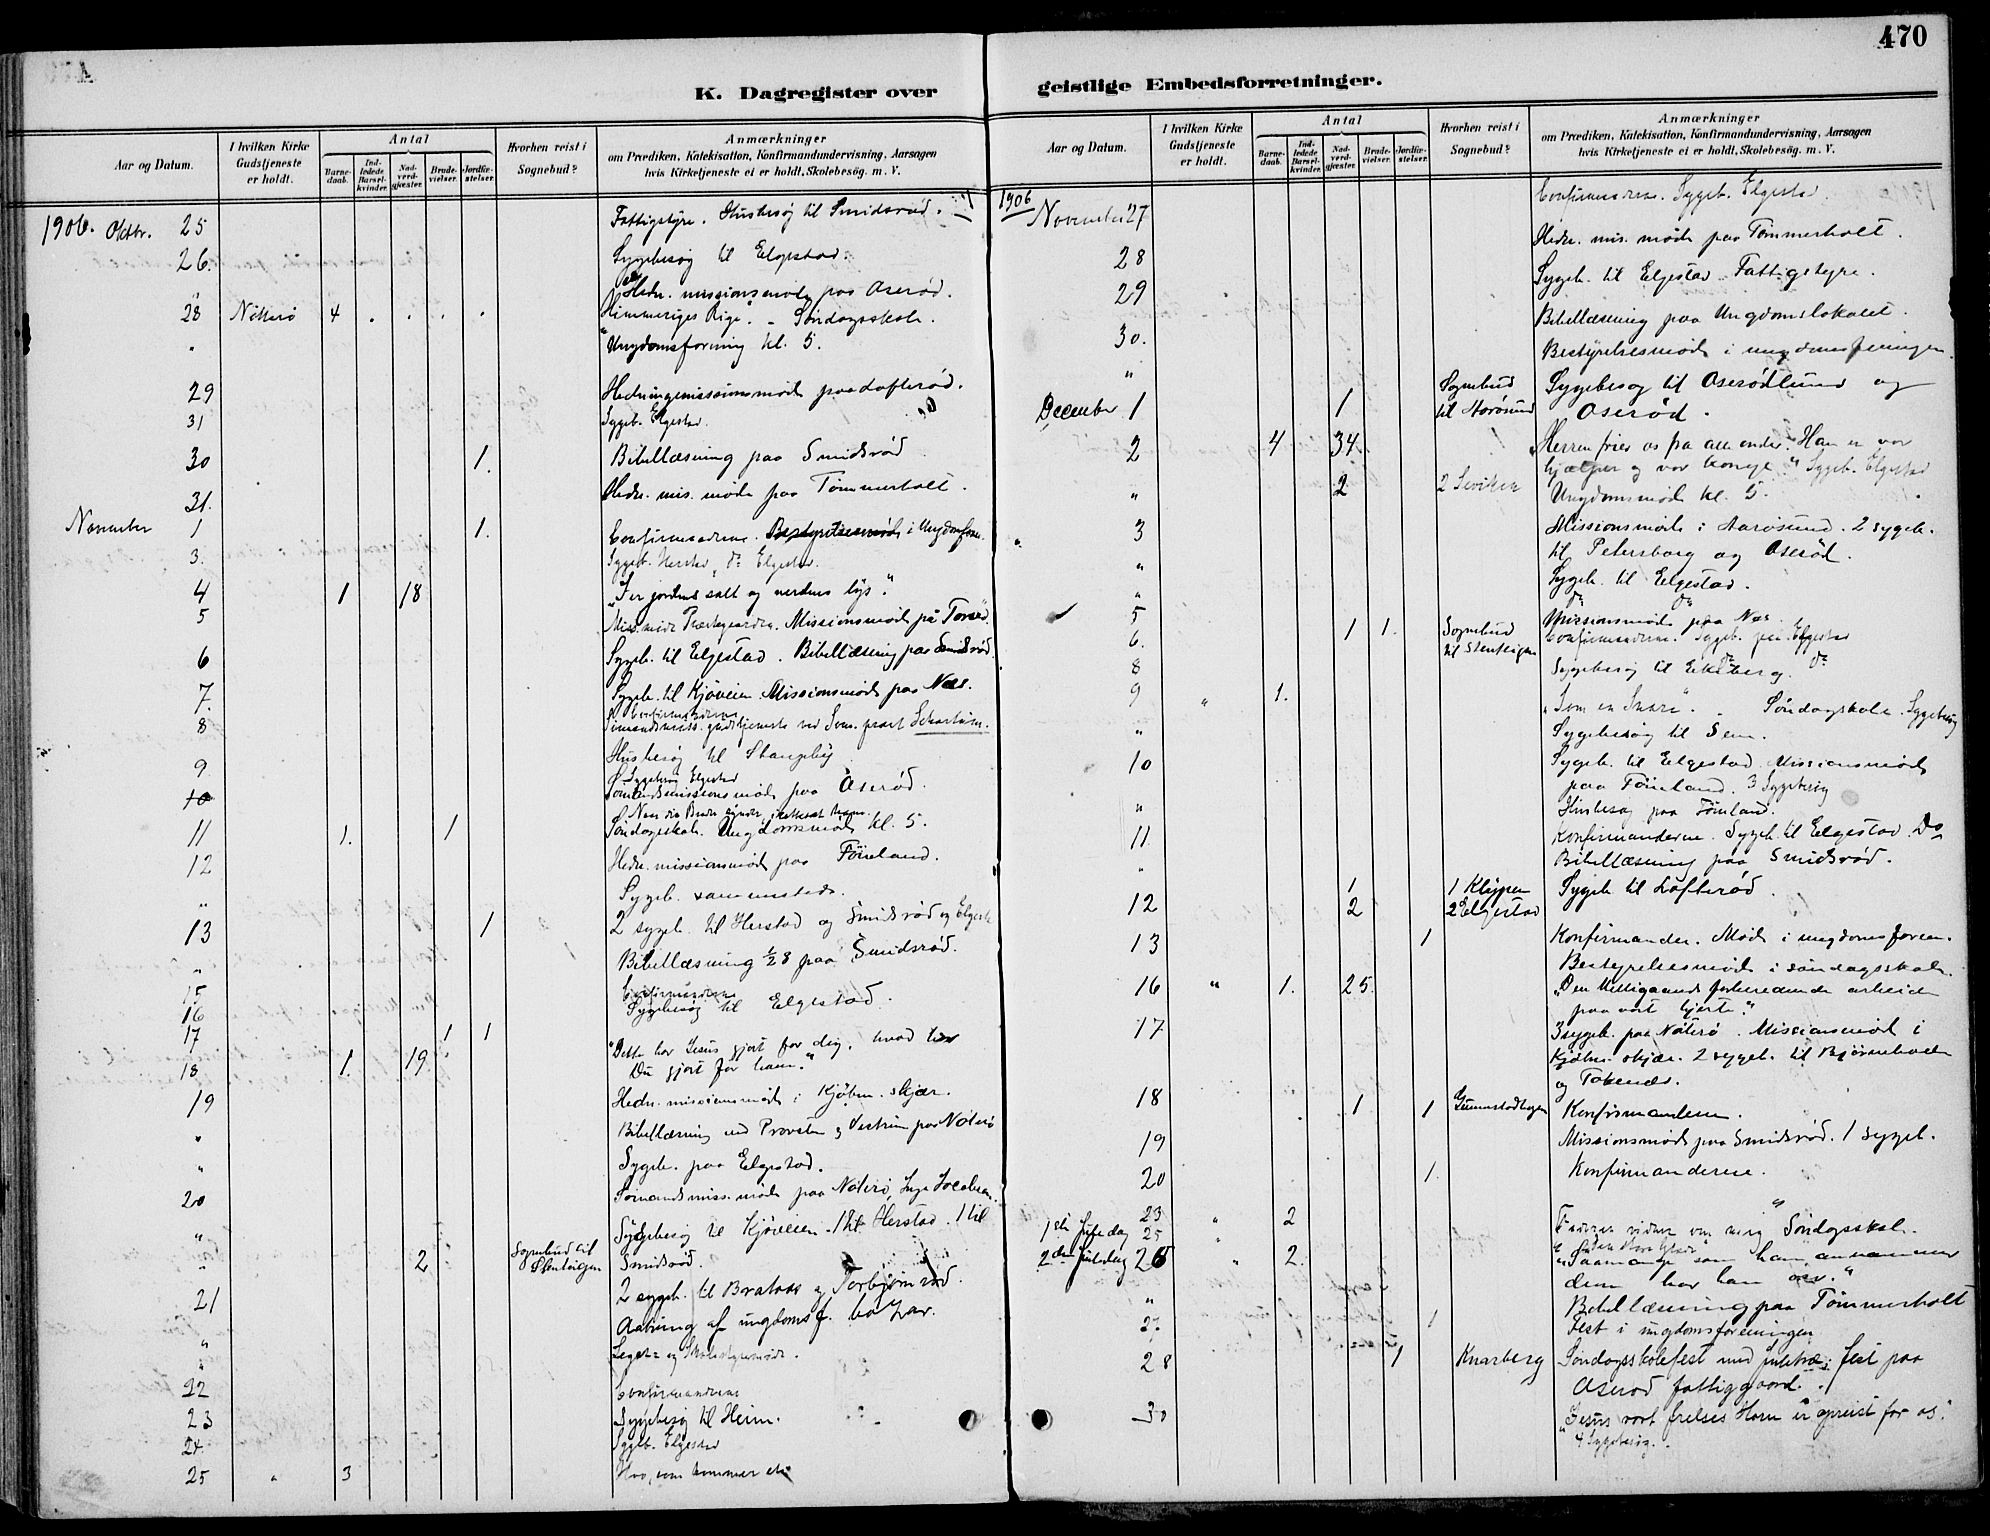 470
K. Dagregister over
geistlige Embedsforretninger.
Aar og Datum.
I hvilken Kirke
Gudstjeneste
er holdt.
Antal
Barne-
daab.
Ind-
ledede
Barsel-
kvinder.
Nad-
verd-
gjæster.
Brude-
vielser.
Jordfæ-
stelser.
Hvorhen reist i
Sognebud?
Anmærkninger
om Prædiken, Katekisation, Konfirmandundervisning, Aarsagen
hvis Kirketjeneste ei er holdt, Skolebesøg. m. V.
1906. Oktbr. 25 Fattigstyre. Husbesøg til Smidsrød.
26. Sygebesøg til Elgestad.
Hedn. missionsmøde paa Oserød.
28 Nötterö 4 Himmeriges Rige". - Søndagsskole.
" Ungdomsforening kl. 5.
29 Hedningemissionsmøde paa Lofterød.
31 Sygeb. Elgestad.
30 1. Bibellæsning paa Smidsrød
31. Hedn. mis. møde paa Tømmerholt.
November 1 1. Confirmanderne. Bestyrelsesmøde i Ungdomsforen.
3. Sygeb. Herstad, do Elgestad.
4 1 18 "I er jordens salt og verdens lys".
5 Miss.møde Præstegaarden. Missionsmøde på Torød.
6 Sygeb. til Elgestad. Bibellæsning paa Smidsrød.
7. Sygeb. til Kjøveien. Missionsmøde paa Næs.
Confirmanderne
8 Sømandsmiss. gudstjeneste ved Søm. præst
Husbesøg til Stangeby
9 Sygebesøg Elgestad
10 Sømandsmissionsmøde paa Oserød.
11 1. 1 Søndagsskole. Ungdomsmøde kl. 5.
12 Hedn. missionsmøde paa Føinland.
" Sygeb. sammesteds.
13 1 2 sygeb. til Herstad og Smidsrød og Elgest
" Bibellæsning ½8 paa Smidsrød.
15 Confirmanderne
16 Sygebesøg til Elgestad.
17 1 1 "Dette har Jesus gjort for dig, hvad har
18 1. 19 Du gjort for ham."
19 Hedn. missionsmøde i Kjøbm. skjær.
" Bibellæsning ved Provsten og Vestrum paa Nøterø
" Sygeb. paa Elgestad.
20 Sømandsmiss. møde paa Nøterø, Jacobsen.
" Sygebesøg til Kjøveien. 1 til Herstad. 1 til
" 2 Sognebud til Stenteigen Smidsrød.
21 2 sygeb. til Brataas og Torbjørnrød.
" Aabning af ungdomsf. bazar.
" Leget= og Skolestyremøde.
22 Confirmanderne
23 Sygebesøg til Heim.
24 Sygeb. Elgestad
25 " 3 Hvo, som kommer etc
1906
Aar og Datum.
I hvilken Kirke
Gudstjeneste
er holdt.
Antal
Barne-
daab.
Ind-
ledede
Barsel-
kvinder.
Nad-
verd-
gjæster.
Brude-
vielser.
Jordfæ-
stelser.
Hvorhen reist i
Sognebud?
Anmærkninger
om Prædiken, Katekisation, Konfirmandundervisning, Aarsagen
hvis Kirketjeneste ei er holdt, Skolebesøg. m. V.
Confirmanderne. Sygeb. Elgestad.
November 27 Hedn. mis. møde paa Tømmerholt.
28 Sygeb. til Elgestad. Fattigstyre.
29 Bibellæsning paa Ungdomslokalet.
30. Bestyrelsesmøde i ungdomsforeningen.
" Sygebesøg til Oserødlund og
December 1 1 Sognebud til Aarøsund Oserød.
2 4 34. "Herren frier os fra alt ondt. Han er vor
hjælper og vor konge." Sygeb. Elgestad
" 2 2 Ungdomsmøde kl. 5.
3 Missionsmøde i Aarøsund. 2 sygeb.
til Petersborg og Oserød.
" Sygeb. til Elgestad.
" do do
5 Missionsmøde paa Næs.
6. 1 1. Sognebud til Stenteigen Confirmanderne. Sygeb. paa Elgestad
8 Sygebesøg til Ekeberg. do
9 " 1. "Som en Snare". - Søndagskole. Sygebesøg
" Sygebesøg til Sem.
10 Sygeb. til Elgestad. Missionsmøde
paa Føinland. 3 Sygebesøg
" Husbesøg paa Føinland.
11. Konfirmanderne. Sygeb. til Elgestad. Do
" Bibellæsning paa Smidsrød.
12 1 2 1 Klyper 2 Elgestad Sygeb. til Lofterød.
13 1 Konfirmander. Møde i ungdomsforen.
Bestyrelsesmøde i søndagsskolen.
16 " 1. 25. "Den Helligaands forberedende arbeide
paa vort hjerte."
17 3 sygeb. paa Nøterø. Missionsmøde i
Kjøbm. skjær. 2 sygeb. til Bjørnebo
og Tokenæs.
18 1 1 Gunnestadhagen Konfirmanderne.
19 Missionsmøde paa Smidsrød. 1 sygeb.
20 1. Konfirmanderne.
23 " 2 Søndagsskole.
1ste Juledag 25 "
2den Juledag 26 " 2. "Saamange som ham annammer
dem har han
" Bibellæsning paa Tømmerholt
27 1 Fest i ungdomsforeningen
28 1 Knarberg Søndagsskolefest med juletræ; fest paa
Oserød fattiggaard.
30 "Jesus vort frelses Horn er opreist for os."
4 Sygebesøg.